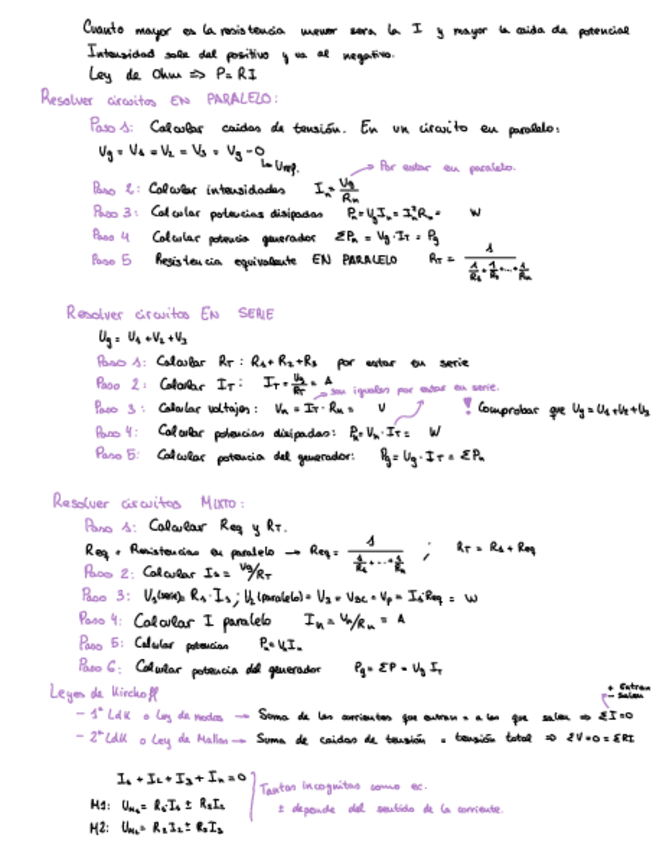 Cuanto mayor es la resistencia menor sera la I y mayor la caida de potencial
Intensidad sale del positivo y va al negativo.
Ley de Ohm => P = RI
Resolver circuitos EN PARALELO:
Paso 1: Calcular caidas de tensión. En un circuito en paralelo:
Vg = V1 = V2 = V3 = Vg - 0
Paso 2: Calcular intensidades In = Vg/Rn → Por estar en paralelo.
Paso 3: Calcular potencias disipadas Pn = VgIn = In²Rn = W
Paso 4 Calcular potencia generador ΣPn = Vg · IT = Pg
Paso 5 Resistencia equivalente EN PARALELO RT = 1/(1/R1 + 1/R2 + ... + 1/Rn)
Resolver circuitos EN SERIE
Ug = U1 + V2 + V3
Paso 1: Calcular RT : R1 + R2 + R3 por estar en serie
Paso 2: Calcular IT : IT = Vg/RT = A
→ son iguales por estar en serie.
Paso 3: Calcular voltajes: Vn = IT · Rn = V ! Comprobar que Vg = V1 + V2 + V3
Paso 4: Calcular potencias disipadas: Pn = Vn · IT = W
Paso 5: Calcular potencia del generador: Pg = Ug · IT = ΣPn
Resolver circuitos MIXTO:
Paso 1: Calcular Req y RT.
Req = Resistencias en paralelo → Req = 1/(1/R1 + ... + 1/Rn) ; RT = R1 + Req
Paso 2: Calcular I1 = Vg/RT
Paso 3: V1(serie) = R1 · I1 ; V2(paralelo) = V3 = VBC = Vp = I1·Req = W
Paso 4: Calcular I paralelo In = Vn/Rn = A
Paso 5: Calcular potencias P = VnIn
Paso 6: Calcular potencia del generador Pg = ΣP = Vg IT
Leyes de Kirchoff
+ Entran
- Salen
- 1ª LdK o Ley de nodos → Suma de las corrientes que entran = a las que salen => ΣI = 0
- 2ª LdK o Ley de Mallas → Suma de caidas de tensión = tensión total => ΣV = 0 = ΣRI
I1 + I2 + I3 + In = 0
Tantas incognitas como ec.
± depende del sentido de la corriente.
M1: UM1 = R1I1 ± R2I2
M2: UM2 = R2I2 ± R3I3